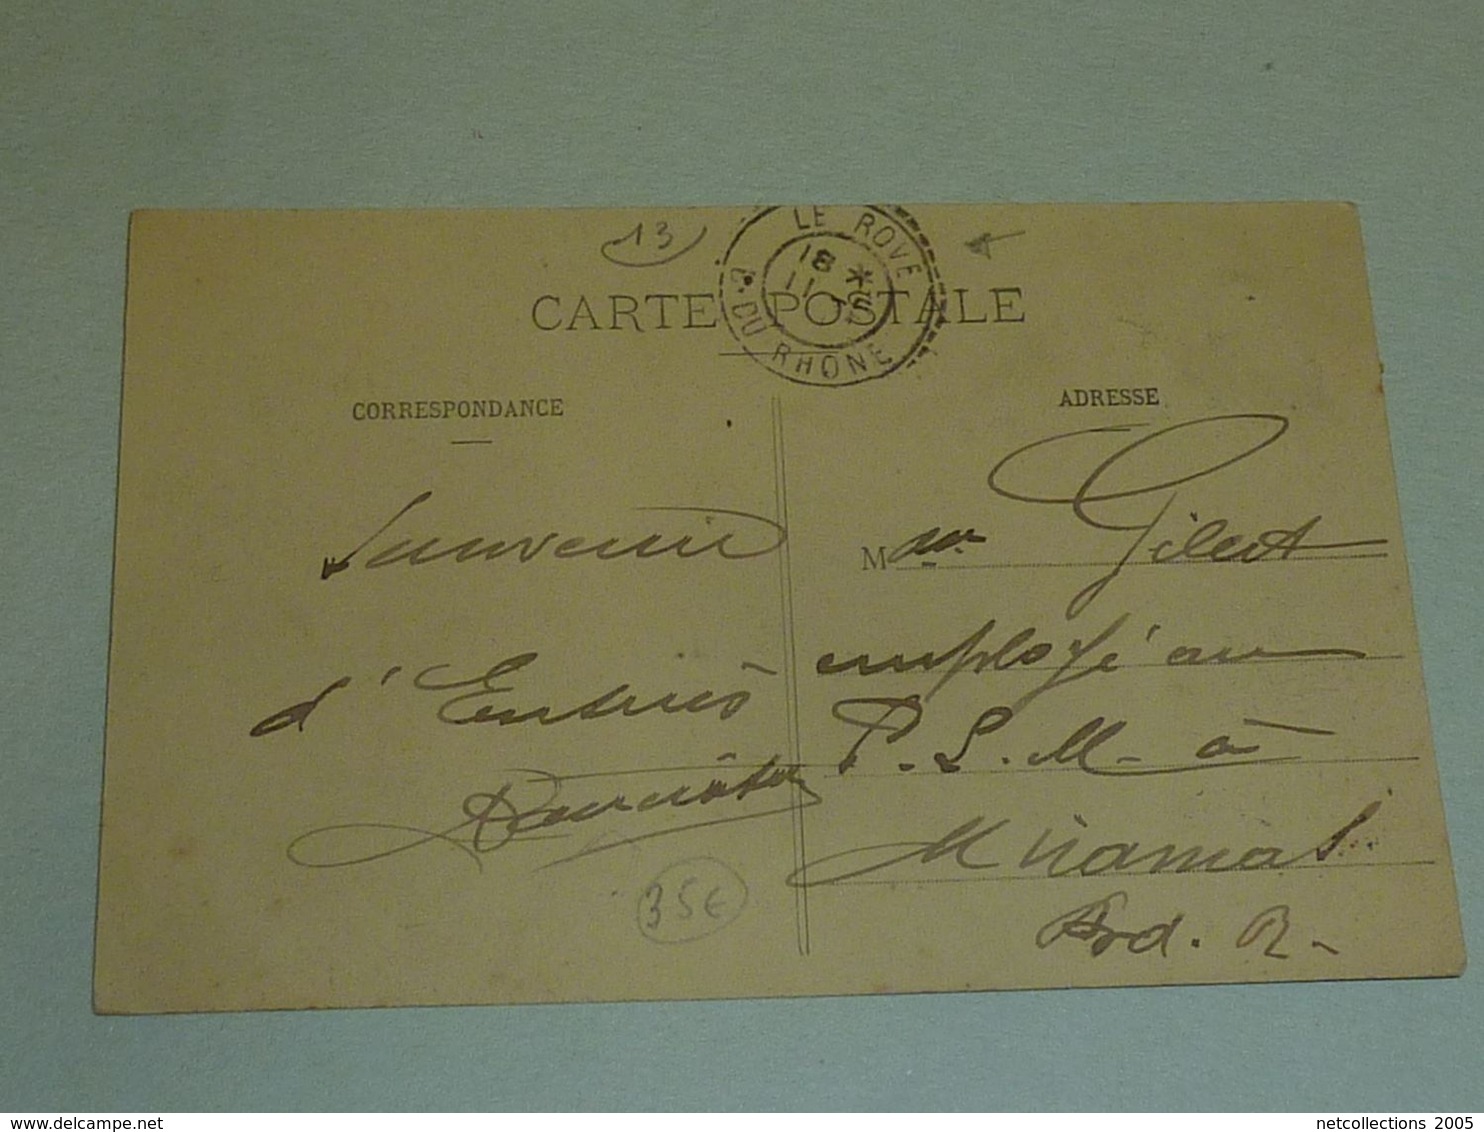 13
LE ROVE
18 *
11
B. DU RHONE
CARTE POSTALE
CORRESPONDANCE
ADRESSE
Souvenir
d'Ensuès
35€
M
employé au
P. L. M. à
Miramas
Bd. R.
delcampe.net
netcollections 2005